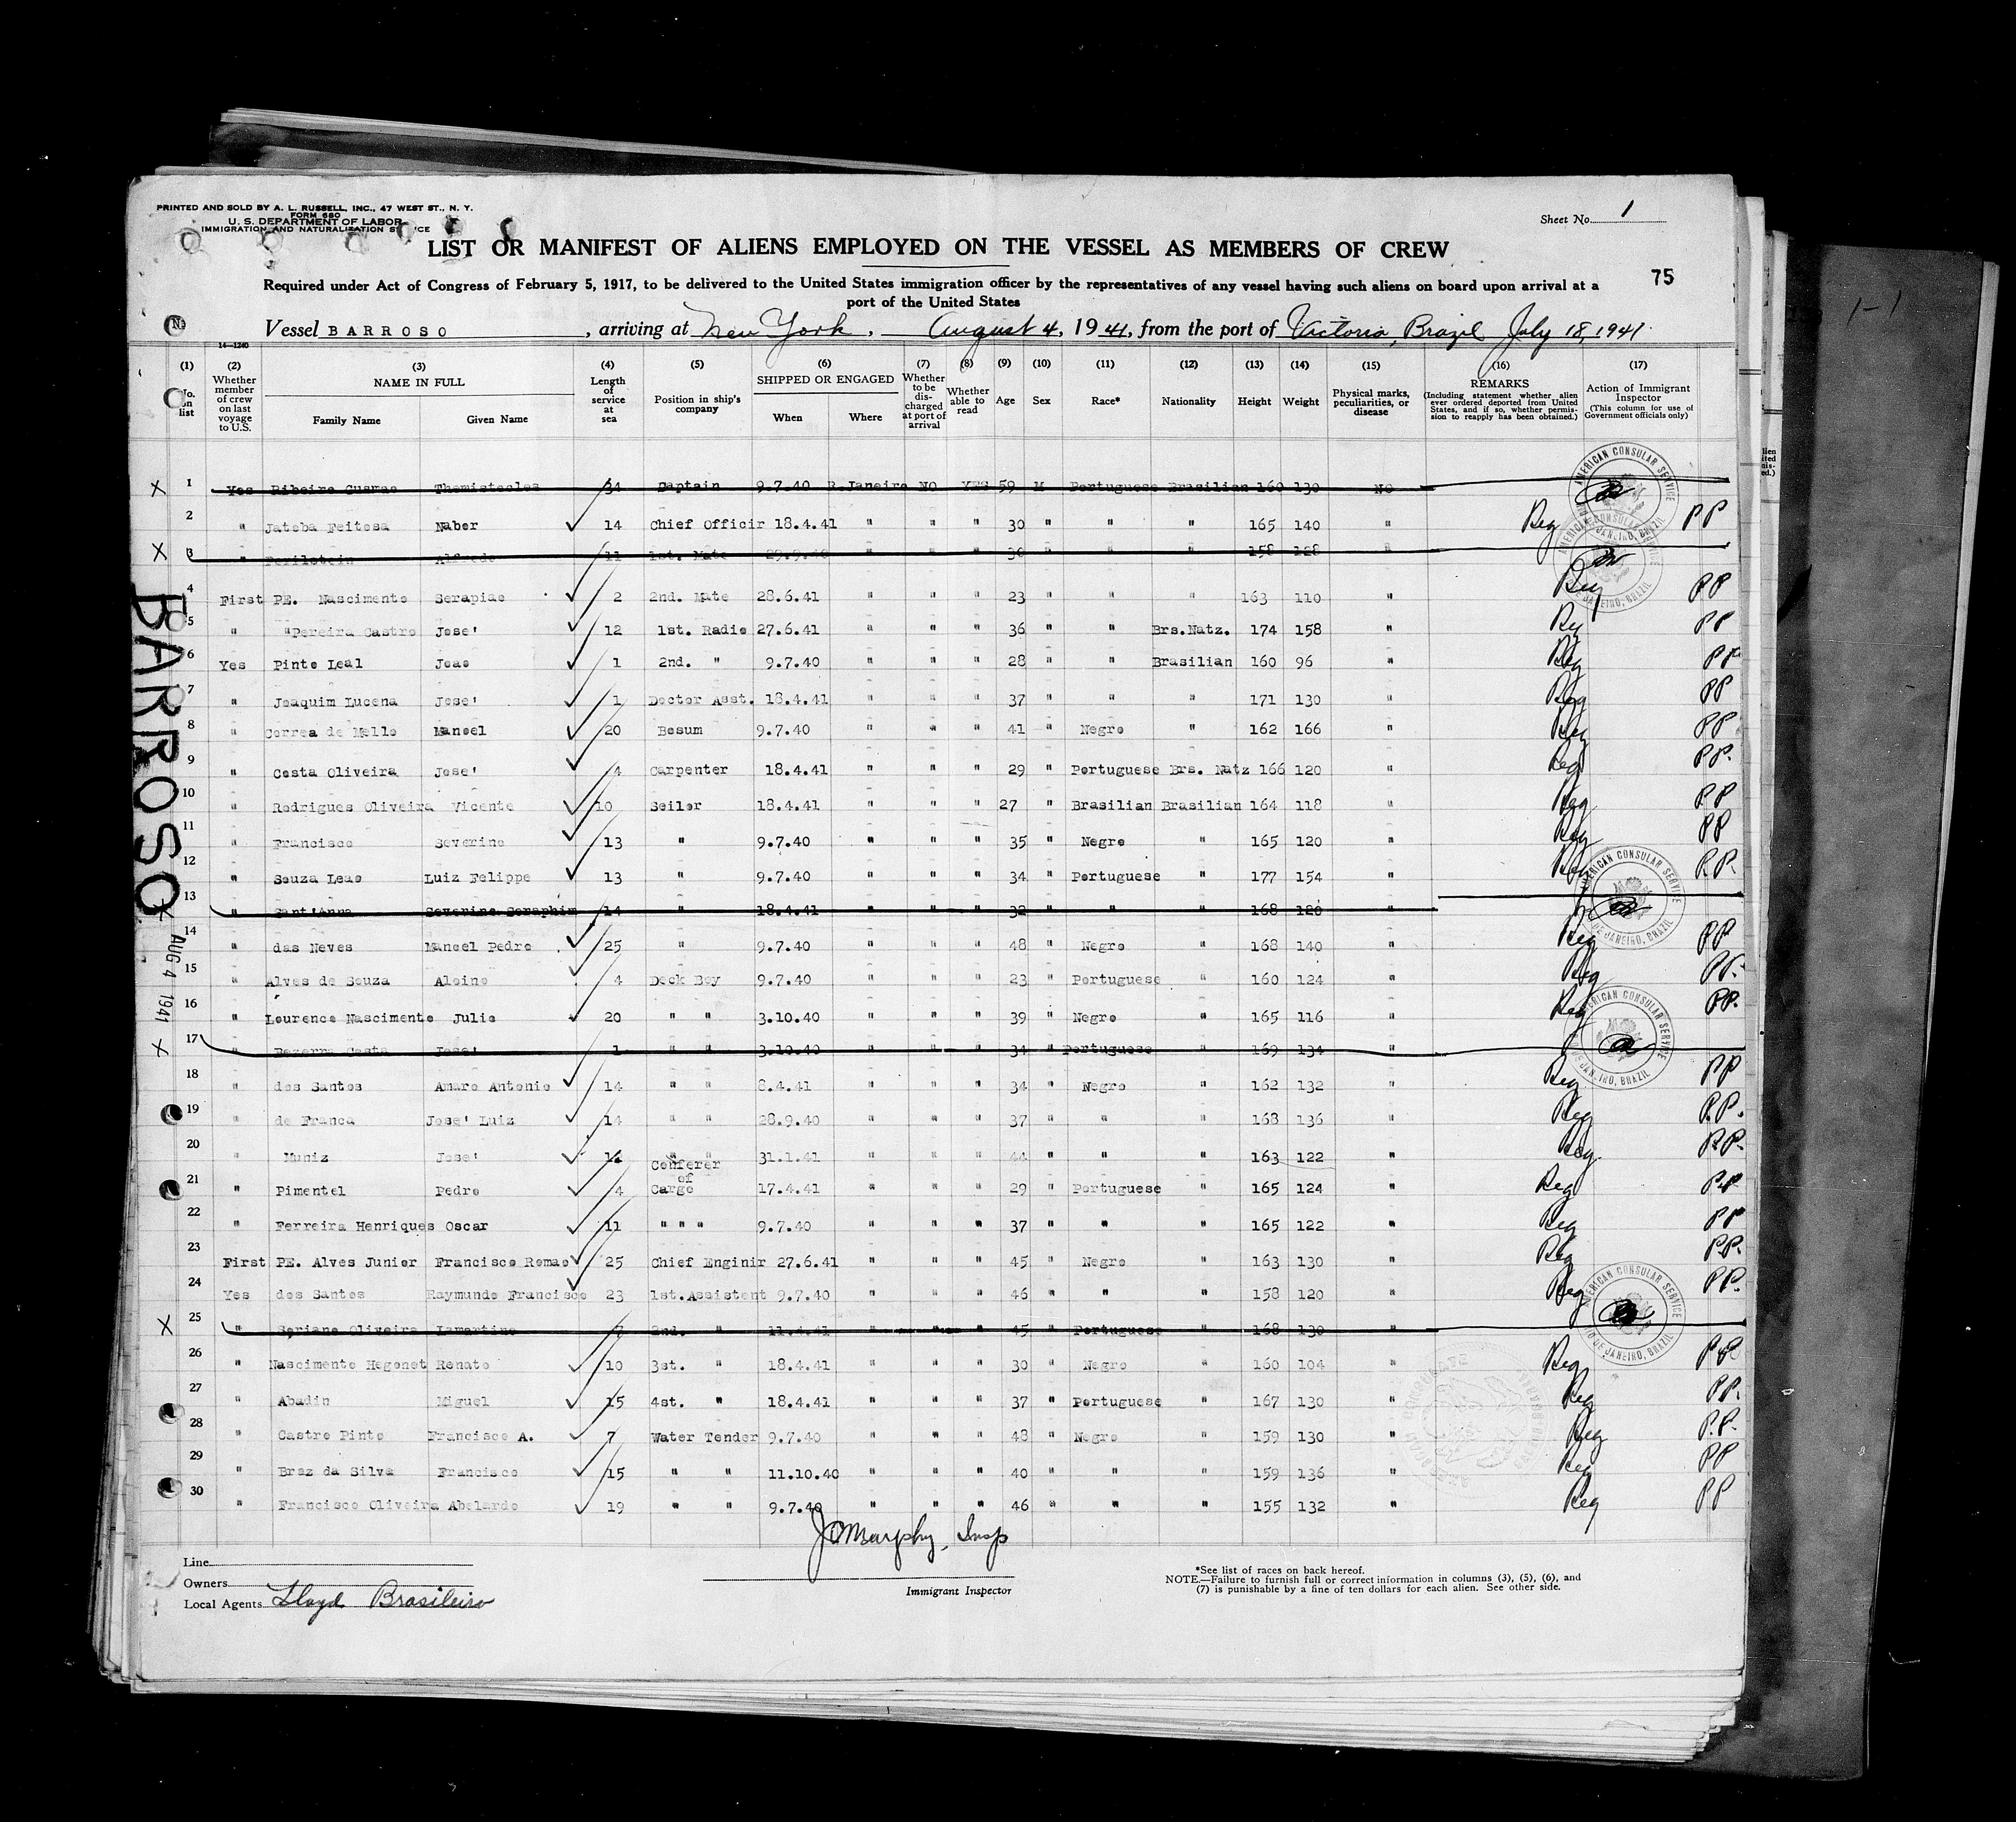 PRINTED AND SOLD BY A. L. RUSSELL, INC., 47 WEST ST., N. Y.
FORM 680
U. S. DEPARTMENT OF LABOR
IMMIGRATION AND NATURALIZATION
Sheet No. 1
LIST OR MANIFEST OF ALIENS EMPLOYED ON THE VESSEL AS MEMBERS OF CREW
75
Required under Act of Congress of February 5, 1917, to be delivered to the United States immigration officer by the representatives of any vessel having such aliens on board upon arrival at a
port of the United States
Vessel BARROSO, arriving at New York, August 4, 1941, from the port of Victoria, Brazil July 18, 1941
14-1240
(1) (2) (3) (4) (5) (6) (7) (8) (9) (10) (11) (12) (13) (14) (15) (16) (17)
No. on list
Whether member of crew on last voyage to U.S.
NAME IN FULL
Family Name Given Name
Length of service at sea
Position in ship's company
SHIPPED OR ENGAGED
When Where
Whether to be discharged at port of arrival
Whether able to read
Age Sex Race* Nationality Height Weight
Physical marks, peculiarities, or disease
REMARKS
(Including statement whether alien ever ordered deported from United States, and if so, whether permission to reapply has been obtained.)
Action of Immigrant Inspector
(This column for use of Government officials only)
X 1 Yes Ribeiro Gusmao Themistocles 34 Captain 9.7.40 R.Janeiro NO YES 59 M Portuguese Brasilian 160 130 NO
2 " Jatoba Feitosa Naber 14 Chief Officir 18.4.41 " " " 30 " " " 165 140 " Reg PP
X 3 " Alfredo 11 1st. Mate " " " " " 158 128 "
4 First PE. Nascimento Serapiao 2 2nd. Mate 28.6.41 " " " 23 " " " 163 110 " Reg PP
5 " " Pereira Castro Jose' 12 1st. Radio 27.6.41 " " " 36 " " Brs.Natz. 174 158 " Reg PP
6 Yes Pinto Leal Joao 1 2nd. " 9.7.40 " " " 28 " " Brasilian 160 96 " Reg PP
7 " Joaquim Lucena Jose' 1 Doctor Asst. 18.4.41 " " " 37 " " " 171 130 " Reg PP
8 " Correa de Mello Manoel 20 Bosum 9.7.40 " " " 41 " Negro " 162 166 " Reg PP
9 " Costa Oliveira Jose' 4 Carpenter 18.4.41 " " " 29 " Portuguese Brs. Natz 166 120 " Reg PP.
10 " Rodrigues Oliveira Vicente 10 Seiler 18.4.41 " " " 27 " Brasilian Brasilian 164 118 " Reg PP
11 " Francisco Severino 13 " 9.7.40 " " " 35 " Negro " 165 120 " Reg PP
12 " Souza Leao Luiz Felippe 13 " 9.7.40 " " " 34 " Portuguese " 177 154 " Reg P.P.
13 " Sant'Anna Severino Seraphim 14 " 18.4.41 " " " 32 " " " 168 120 "
14 " das Neves Manoel Pedro 25 " 9.7.40 " " " 48 " Negro " 168 140 " Reg PP
15 " Alves de Souza Aloino 4 Deck Boy 9.7.40 " " " 23 " Portuguese " 160 124 " Reg PP.
16 " Lourenco Nascimento Julio 20 " " 3.10.40 " " " 39 " Negro " 165 116 " Reg PP.
X 17 " Bezerra Costa Jose' 1 " " 3.10.40 " " " 34 " Portuguese " 169 134 "
18 " dos Santos Amaro Antonio 14 " " 8.4.41 " " " 34 " Negro " 162 132 " Reg PP
19 " de Franca Jose' Luiz 14 " " 28.9.40 " " " 37 " " " 168 136 " Reg P.P.
20 " Muniz Jose' " " 31.1.41 " " " 44 " " " 163 122 " Reg P.P.
21 " Pimentel Pedro 4 Conferer of Cargo 17.4.41 " " " 29 " Portuguese " 165 124 " Reg PP
22 " Ferreira Henriques Oscar 11 " " " 9.7.40 " " " 37 " " " 165 122 " Reg PP
23 First PE. Alves Junior Francisco Romao 25 Chief Enginir 27.6.41 " " " 45 " Negro " 163 130 " Reg P.P.
24 Yes dos Santos Raymundo Francisco 23 1st.Assistent 9.7.40 " " " 46 " " " 158 120 " Reg PP.
X 25 " Soriano Oliveira Lamartine 7 2nd. " 11.4.41 " " " 45 " Portuguese " 168 130 "
26 " Nascimento Hegonet Renato 10 3st. " 18.4.41 " " " 30 " Negro " 160 104 " Reg PP
27 " Abadin Miguel 15 4st. " 18.4.41 " " " 37 " Portuguese " 167 130 " Reg PP.
28 " Castro Pinto Francisco A. 7 Water Tender 9.7.40 " " " 48 " Negro " 159 130 " Reg P.P.
29 " Braz da Silva Francisco 15 " " 11.10.40 " " " 40 " " " 159 136 " Reg PP
30 " Francisco Oliveira Abelardo 19 " " 9.7.40 " " " 46 " " " 155 132 " Reg PP
BARROSO
AUG 4 1941
AMERICAN CONSULAR SERVICE
RIO DE JANEIRO, BRAZIL
J Murphy, Insp
Immigrant Inspector
Line
Owners
Local Agents Lloyd Brasileiro
*See list of races on back hereof.
NOTE.—Failure to furnish full or correct information in columns (3), (5), (6), and
(7) is punishable by a fine of ten dollars for each alien. See other side.